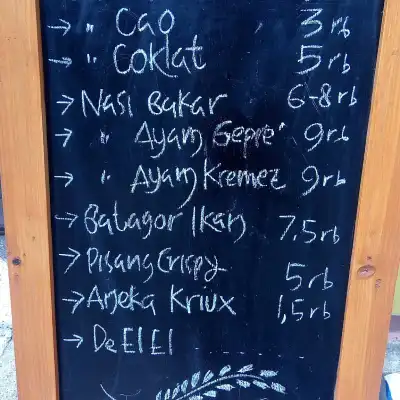 → " Cao 3 rb
→ " Coklat 5 rb
→ Nasi Bakar 6-8 rb
→ " Ayam Gepre' 9 rb
→ " Ayam Kremez 9 rb
→ Batagor Ikan 7,5 rb
→ Pisang Crispy 5 rb
→ Aneka Kriux 1,5 rb
→ De El El ...........